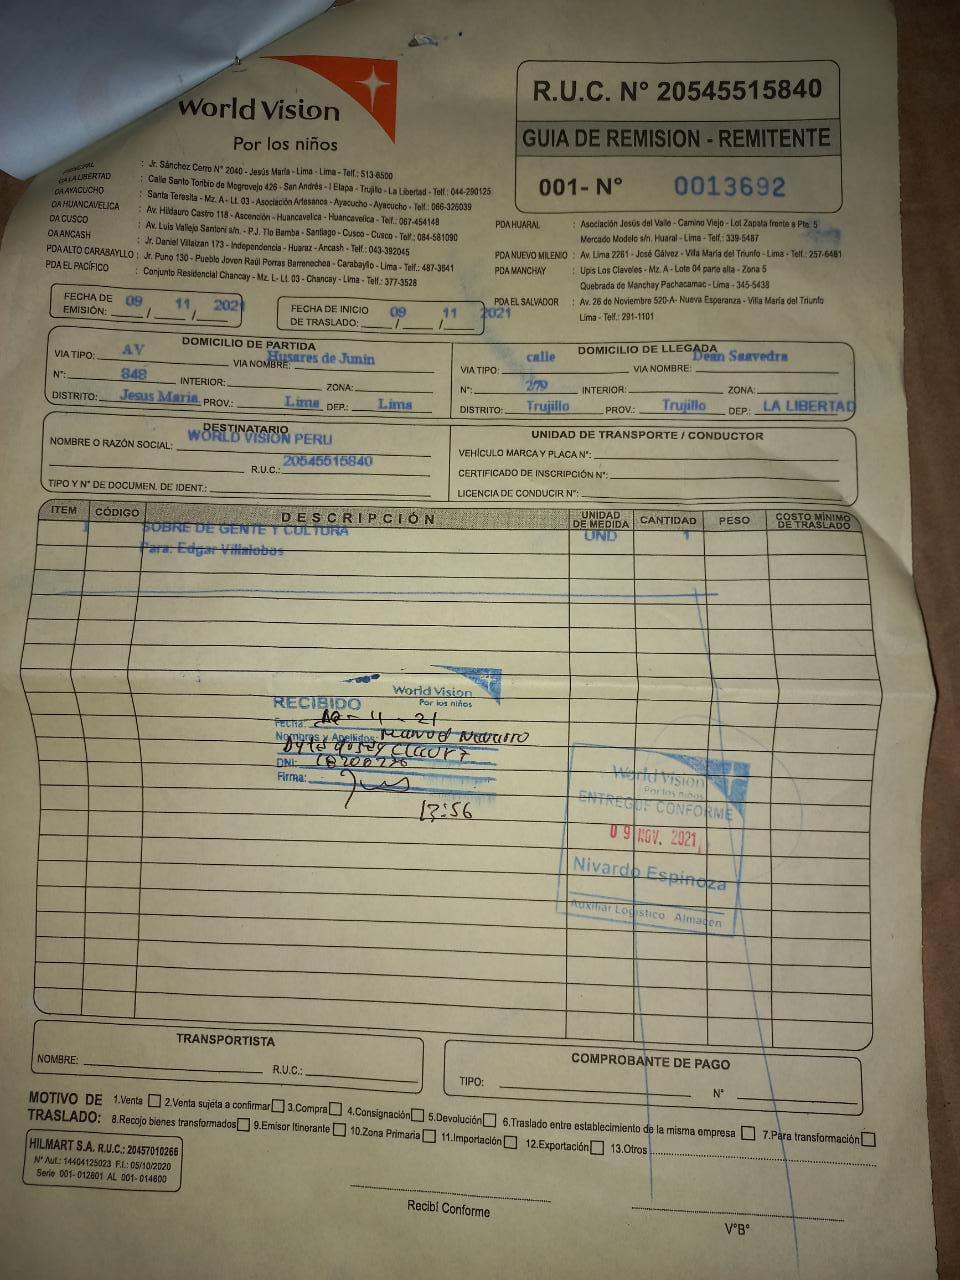 World Vision
Por los niños
R.U.C. N° 20545515840
GUIA DE REMISION - REMITENTE
001- N° 0013692
PRINCIPAL : Jr. Sánchez Cerro N° 2040 - Jesús María - Lima - Lima - Telf.: 513-6500
OA LA LIBERTAD : Calle Santo Toribio de Mogrovejo 426 - San Andrés - I Etapa - Trujillo - La Libertad - Telf.: 044-290125
OA AYACUCHO : Santa Teresita - Mz. A - Lt. 03 - Asociación Artesanos - Ayacucho - Ayacucho - Telf.: 066-326039
OA HUANCAVELICA : Av. Hildauro Castro 118 - Ascención - Huancavelica - Huancavelica - Telf.: 067-454148
OA CUSCO : Av. Luis Vallejo Santoni s/n. - P.J. Tio Bamba - Santiago - Cusco - Cusco - Telf.: 084-581090
OA ANCASH : Jr. Daniel Villaizan 173 - Independencia - Huaraz - Ancash - Telf.: 043-392045
PDA ALTO CARABAYLLO : Jr. Puno 130 - Pueblo Joven Raúl Porras Barrenechea - Carabayllo - Lima - Telf.: 487-3641
PDA EL PACÍFICO : Conjunto Residencial Chancay - Mz. L - Lt. 03 - Chancay - Lima - Telf.: 377-3528
PDA HUARAL : Asociación Jesús del Valle - Camino Viejo - Lot Zapata frente a Pte. 5
Mercado Modelo s/n. Huaral - Lima - Telf.: 339-5487
PDA NUEVO MILENIO : Av. Lima 2261 - José Gálvez - Villa María del Triunfo - Lima - Telf.: 257-6481
PDA MANCHAY : Upis Los Claveles - Mz. A - Lote 04 parte alta - Zona 5
Quebrada de Manchay Pachacamac - Lima - 345-5438
PDA EL SALVADOR : Av. 26 de Noviembre 520-A- Nueva Esperanza - Villa María del Triunfo
Lima - Telf.: 291-1101
FECHA DE EMISIÓN: 09 / 11 / 2021
FECHA DE INICIO DE TRASLADO: 09 / 11 / 2021
DOMICILIO DE PARTIDA
VIA TIPO: AV VIA NOMBRE: Husares de Junin
N°: 848 INTERIOR: ZONA:
DISTRITO: Jesus Maria PROV.: Lima DEP.: Lima
DOMICILIO DE LLEGADA
VIA TIPO: calle VIA NOMBRE: Dean Saavedra
N°: 279 INTERIOR: ZONA:
DISTRITO: Trujillo PROV.: Trujillo DEP.: LA LIBERTAD
DESTINATARIO
NOMBRE O RAZÓN SOCIAL: WORLD VISION PERU
R.U.C.: 20545515840
TIPO Y N° DE DOCUMEN. DE IDENT.:
UNIDAD DE TRANSPORTE / CONDUCTOR
VEHÍCULO MARCA Y PLACA N°:
CERTIFICADO DE INSCRIPCIÓN N°:
LICENCIA DE CONDUCIR N°:
ITEM CÓDIGO DESCRIPCIÓN UNIDAD DE MEDIDA CANTIDAD PESO COSTO MÍNIMO DE TRASLADO
1 SOBRE DE GENTE Y CULTURA UND 1
Para: Edgar Villalobos
World Vision
Por los niños
RECIBIDO
Fecha: 11 - 21
Nombres y Apellidos: Manuel Navarro
DNI:
Firma:
13:56
World Vision
Por los niños
ENTREGUE CONFORME
09 NOV. 2021
Nivardo Espinoza
Auxiliar Logístico Almacén
TRANSPORTISTA
NOMBRE: R.U.C.:
COMPROBANTE DE PAGO
TIPO: N°
MOTIVO DE TRASLADO: 1.Venta 2.Venta sujeta a confirmar 3.Compra 4.Consignación 5.Devolución 6.Traslado entre establecimiento de la misma empresa 7.Para transformación
8.Recojo bienes transformados 9.Emisor Itinerante 10.Zona Primaria 11.Importación 12.Exportación 13.Otros
HILMART S.A. R.U.C.: 20457010266
N° Aut.: 14404125023 F.I.: 05/10/2020
Serie 001- 012601 AL 001- 014600
Recibí Conforme
V°B°